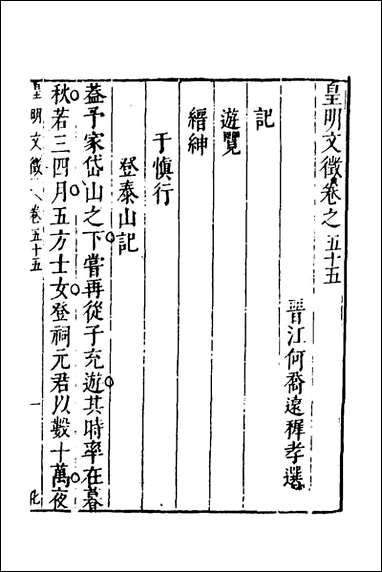 皇明文徵卷之五十五
晉江何喬遠穉孝選
記
遊覽
縉紳
于慎行
登泰山記
葢予家岱山之下嘗再從子充遊其時率在暮
秋若三四月五方士女登祠元君以數十萬夜
皇明文徵
卷五十五
一